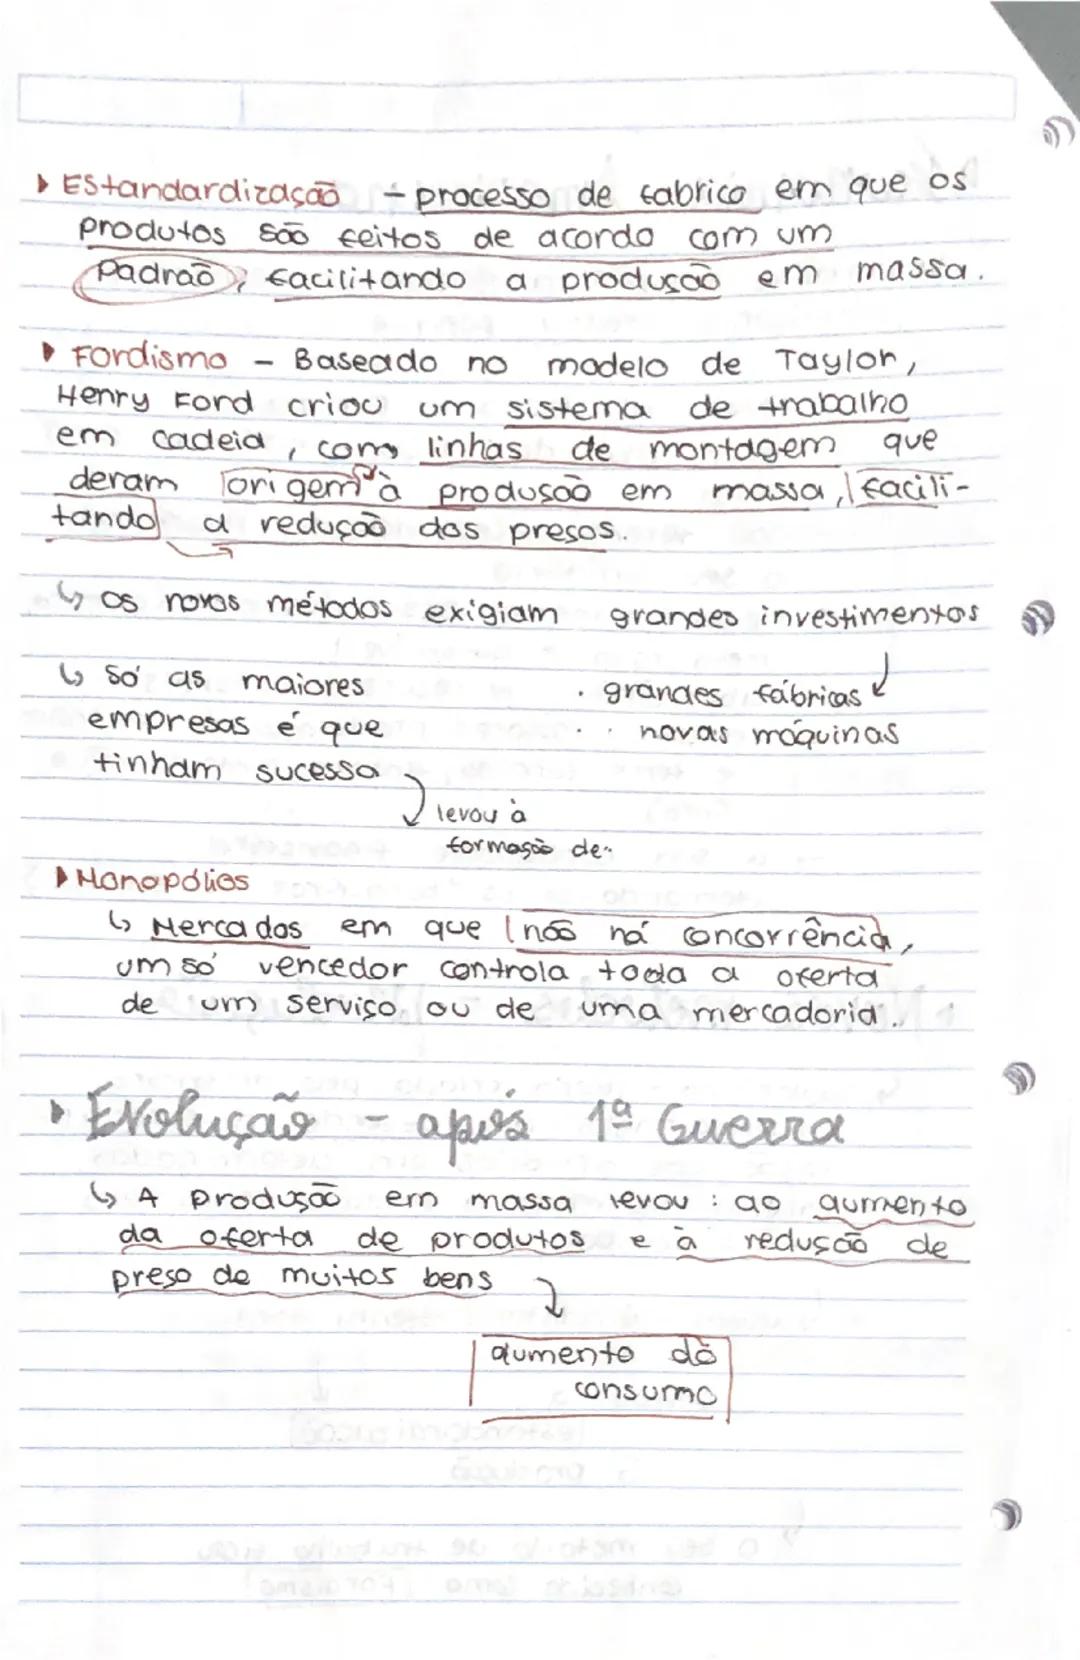 ▸ Estandardização - processo de fabrico em que os
produtos são feitos de acordo com um
Padrão, facilitando a produção em massa.
▸ Fordismo - Baseado no modelo de Taylor,
Henry Ford criou um sistema de trabalho
em cadeia, com linhas de montagem que
deram origem à produção em massa, facili-
tando a redução dos preços.
↳ os novos métodos exigiam grandes investimentos
↳ só as maiores
empresas é que
tinham sucesso
· grandes fábricas
· novas máquinas
levou à
formação de:
▸ Monopólios
↳ Mercados em que não há concorrência,
um só vencedor controla toda a oferta
de um serviço ou de uma mercadoria.
▸ Evolução - após 1ª Guerra
↳ A produção em massa levou: ao aumento
da oferta de produtos e à redução de
preço de muitos bens
aumento do
consumo